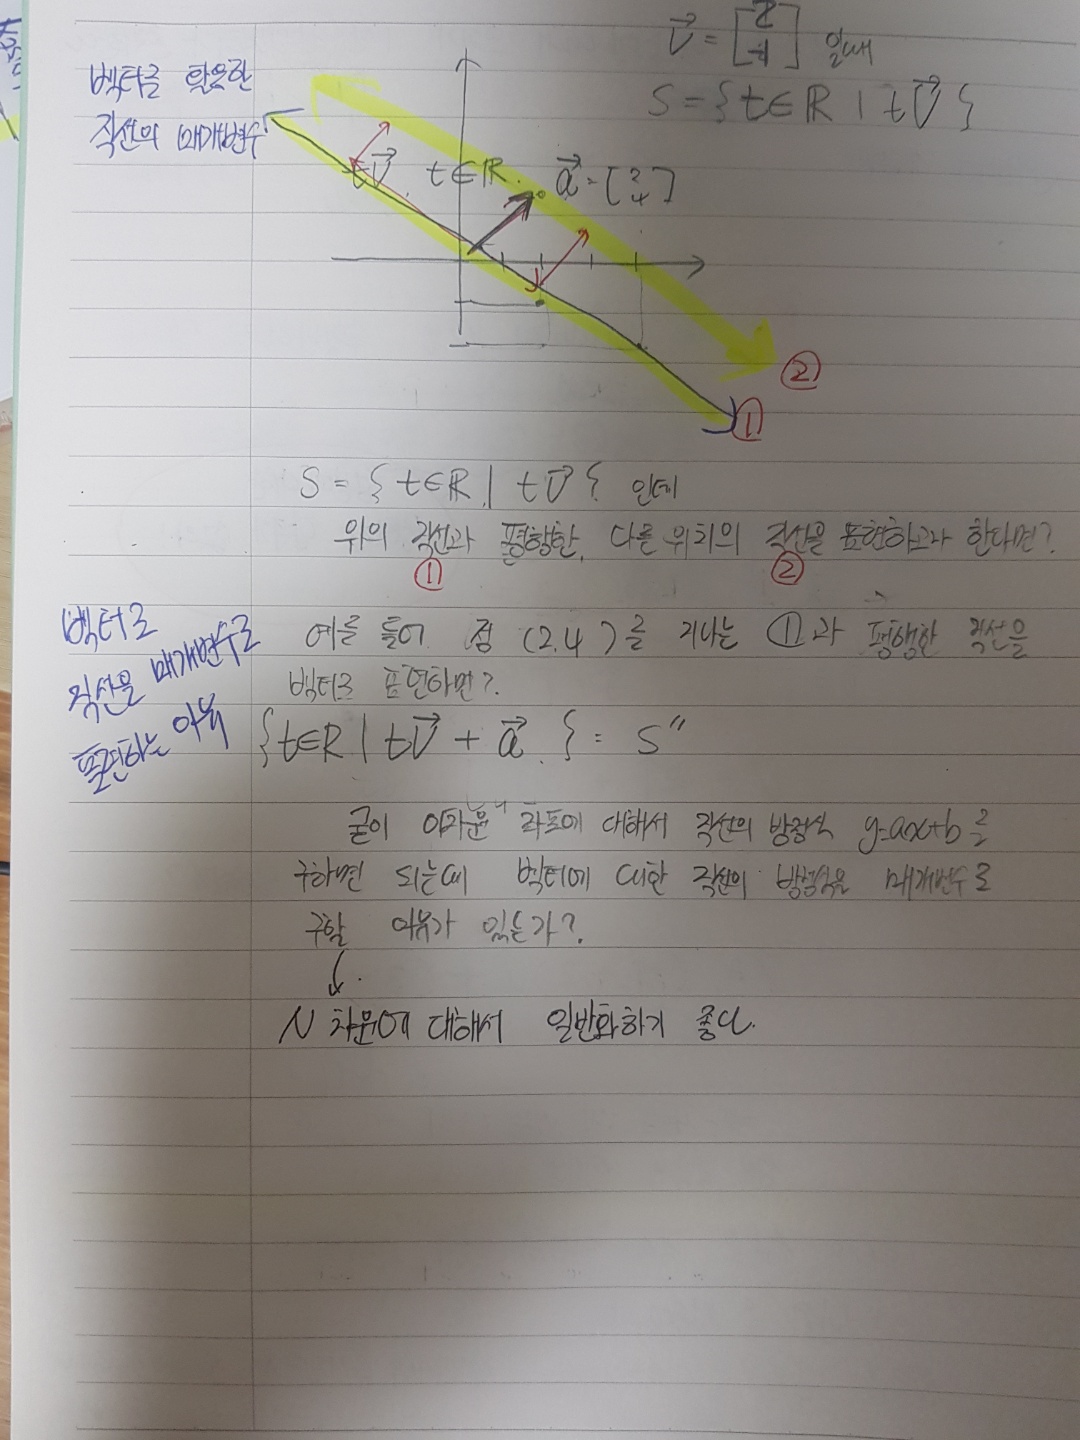 벡터를 활용한
직선의 매개변수
V⃗ = [2 -1] 일때
S = { t∈R | tV⃗ }
tV⃗, t∈R.
a⃗ = [2 4]
②
①
S = { t∈R | tV⃗ } 인데
위의 직선과 평행한, 다른 위치의 직선을 표현하고자 한다면?
① ②
벡터로
직선을 매개변수로
표현하는 이유
예를 들어 점 (2,4)를 지나는 ①과 평행한 직선을
벡터로 표현하면?
{ t∈R | tV⃗ + a⃗ } = S"
굳이 이차원 좌표에 대해서 직선의 방정식 y=ax+b 를
구하면 되는데 벡터에 대한 직선의 방정식을 매개변수로
구할 이유가 있는가?
↓
N 차원에 대해서 일반화하기 좋다.